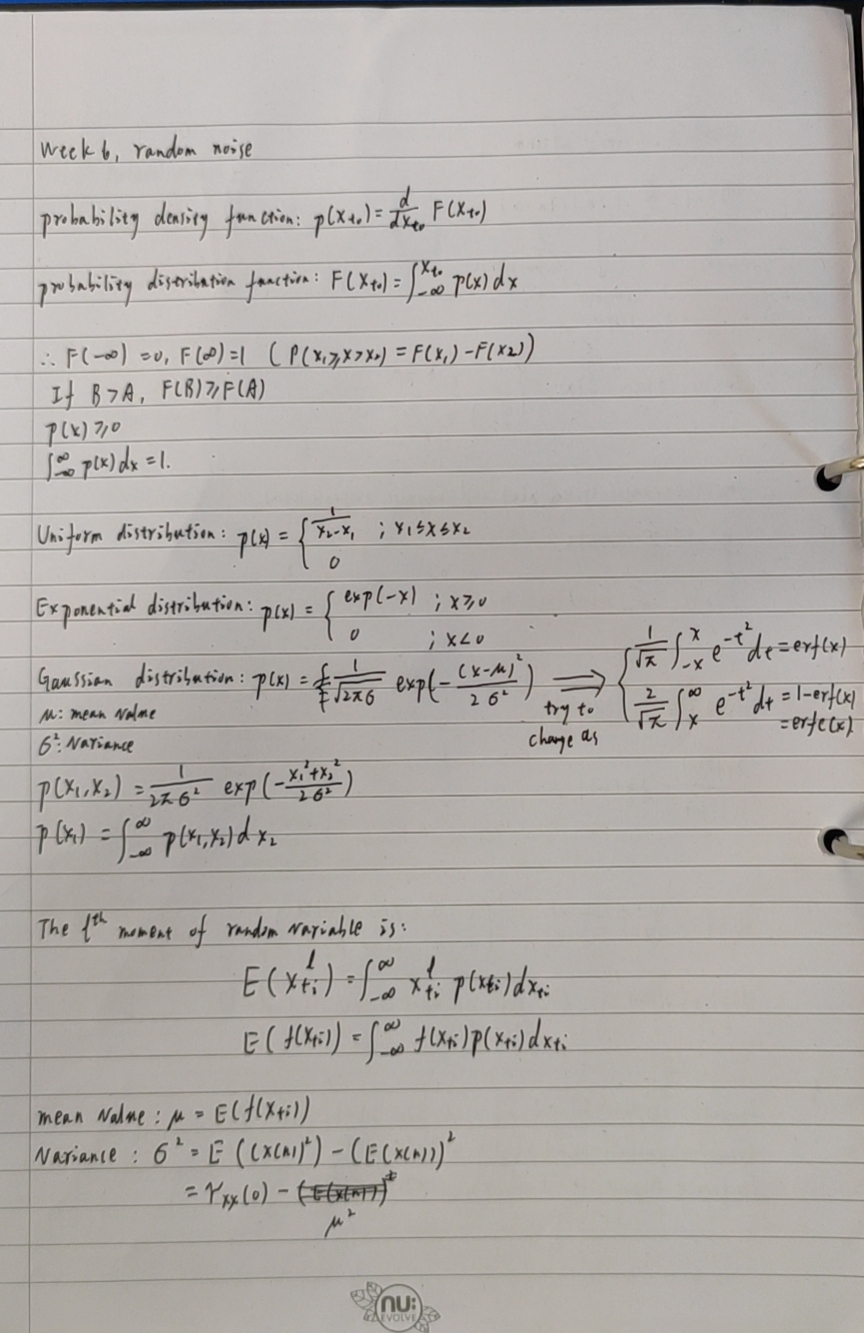 Week 6, random noise
probability density function: p(x_{t_0}) = \frac{d}{dx_{t_0}} F(x_{t_0})
probability distribution function: F(x_{t_0}) = \int_{-\infty}^{x_{t_0}} p(x) dx
∴ F(-∞) = 0, F(∞) = 1 ( P(x_1 ⩾ x > x_2) = F(x_1) - F(x_2))
If B > A, F(B) ⩾ F(A)
p(x) ⩾ 0
\int_{-\infty}^{\infty} p(x) dx = 1.
Uniform distribution: p(x) = { \frac{1}{x_2 - x_1} ; x_1 ≤ x ≤ x_2
0
Exponential distribution: p(x) = { exp(-x) ; x ⩾ 0
0 ; x < 0
Gaussian distribution: p(x) = \frac{1}{\sqrt{2π}σ} exp(-\frac{(x-μ)^2}{2σ^2}) ⟹ try to change as { \frac{1}{\sqrt{π}} \int_{-x}^{x} e^{-t^2} dt = erf(x)
\frac{2}{\sqrt{π}} \int_{x}^{\infty} e^{-t^2} dt = 1 - erf(x)
= erfc(x).
μ: mean value
σ^2: Variance
p(x_1, x_2) = \frac{1}{2πσ^2} exp(-\frac{x_1^2 + x_2^2}{2σ^2})
p(x_1) = \int_{-\infty}^{\infty} p(x_1, x_2) d x_2
The l^{th} moment of random variable is:
E(x_{ti}^l) = \int_{-\infty}^{\infty} x_{ti}^l p(x_{ti}) dx_{ti}
E( f(x_{ti})) = \int_{-\infty}^{\infty} f(x_{ti}) p(x_{ti}) dx_{ti}
mean value: μ = E(f(x_{ti}))
Variance: σ^2 = E ((x(n)^2) - (E(x(n))^2
= γ_{xx}(0) - μ^2
nu:
EVOLVE